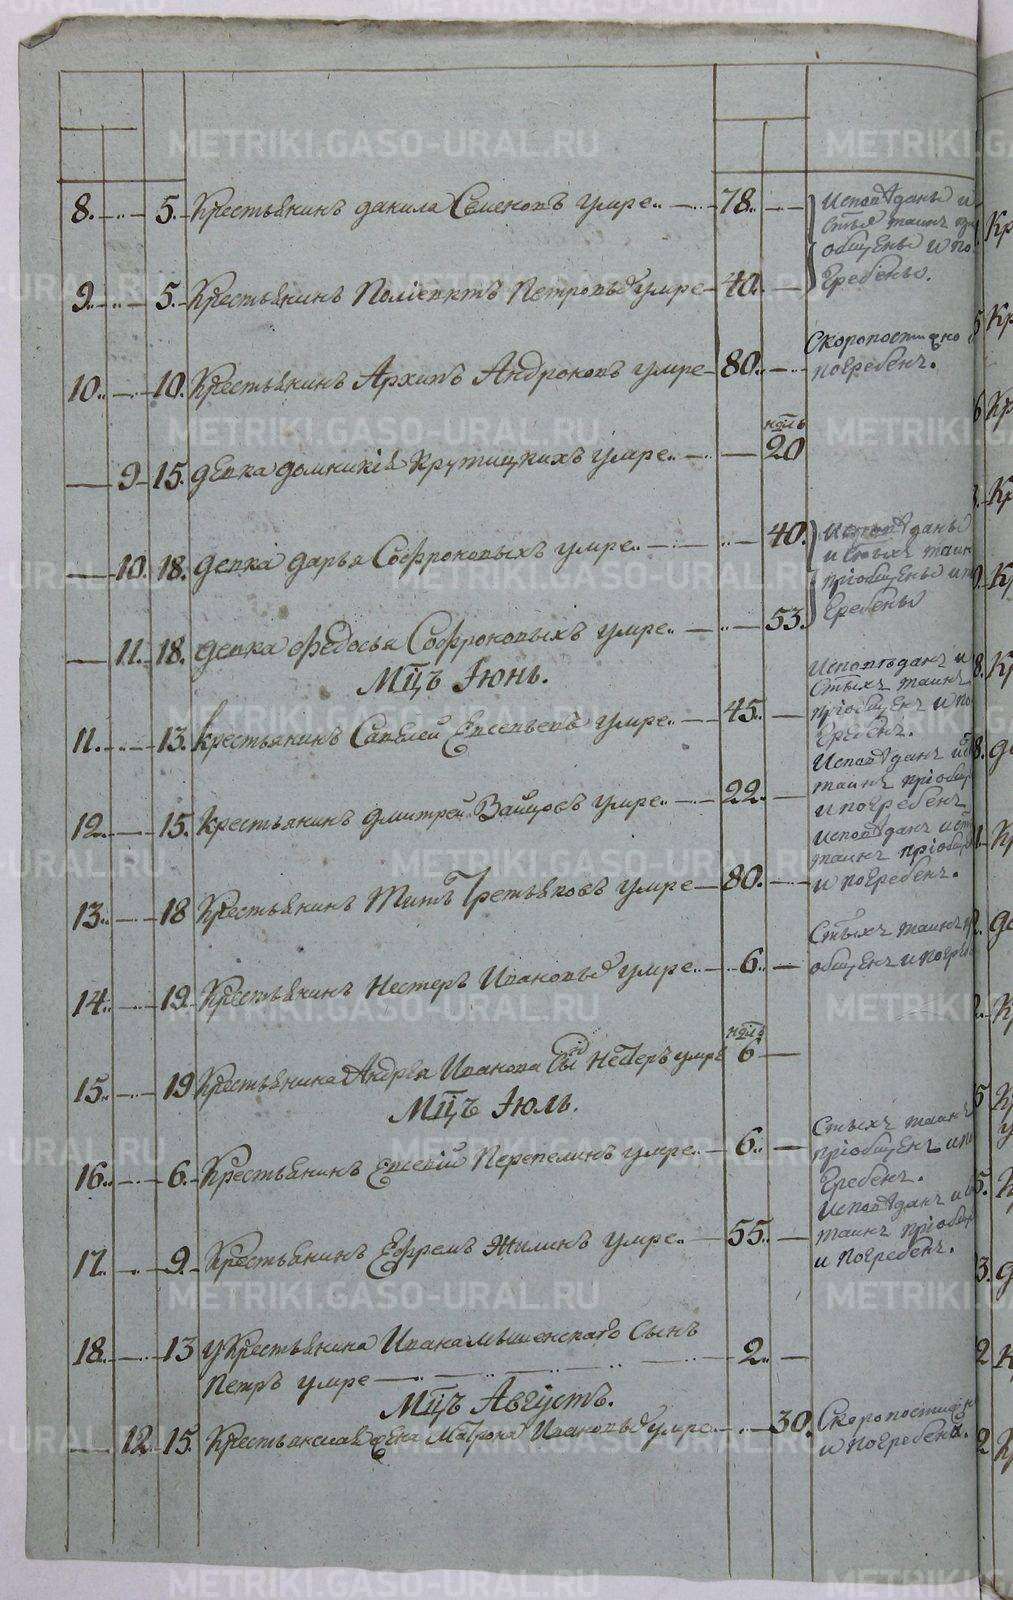 8. 5. Крестьянинъ данила Семеновъ умре 78. Исповѣданы и
Стыя таинъ
общены и по
гребены.
9. 5. Крестьянинъ Поліевктъ Петровыхъ умре 40.
10. 10. Крестьянинъ Архипъ Андроновъ умре 80. Скоропостижно
погребенъ.
9 15. девка домникія Крутицкихъ умре ндль 20
10. 18. девка дарья Софроновыхъ умре 40. Исповѣданы
и Стыхъ таинъ
пріобщены и по
гребены
11. 18. девка федосья Софроновыхъ умре 53.
Мцъ Іюнь.
11. 13. крестьянинъ Савелей Евсевьевъ умре 45. Исповѣданъ и
Стыхъ таинъ
пріобщенъ и по
гребенъ.
12. 15. крестьянинъ дмитрей Зайцовъ умре 22. Исповѣданъ и
таинъ пріобщ
и погребенъ
13. 18 Крестьянинъ Титъ Третьяковъ умре 80. Исповѣданъ и
таинъ пріобщ
и погребенъ.
14. 19. Крестьянинъ Нестеръ Ивановыхъ умре 6. Стыхъ таинъ
общенъ и погреб
15. 19 Крестьянина Андрея Иванова сынъ Несторъ умре ндль 6
Мцъ Іюль.
16. 6. Крестьянинъ Евсевій Перепелинъ умре 6. Стыхъ таинъ
пріобщенъ и по
гребенъ.
17. 9. Крестьянинъ Ефремъ Жилинъ умре 55. Исповѣданъ и
таинъ пріобщ
и погребенъ.
18. 13 У Крестьянина Ивана Мышенскаго сынъ
Петръ умре 2.
Мцъ Августъ.
12. 15. Крестьянская жена Матрона Ивановыхъ умре 30. Скоропостижн
и погребена.
METRIKI.GASO-URAL.RU